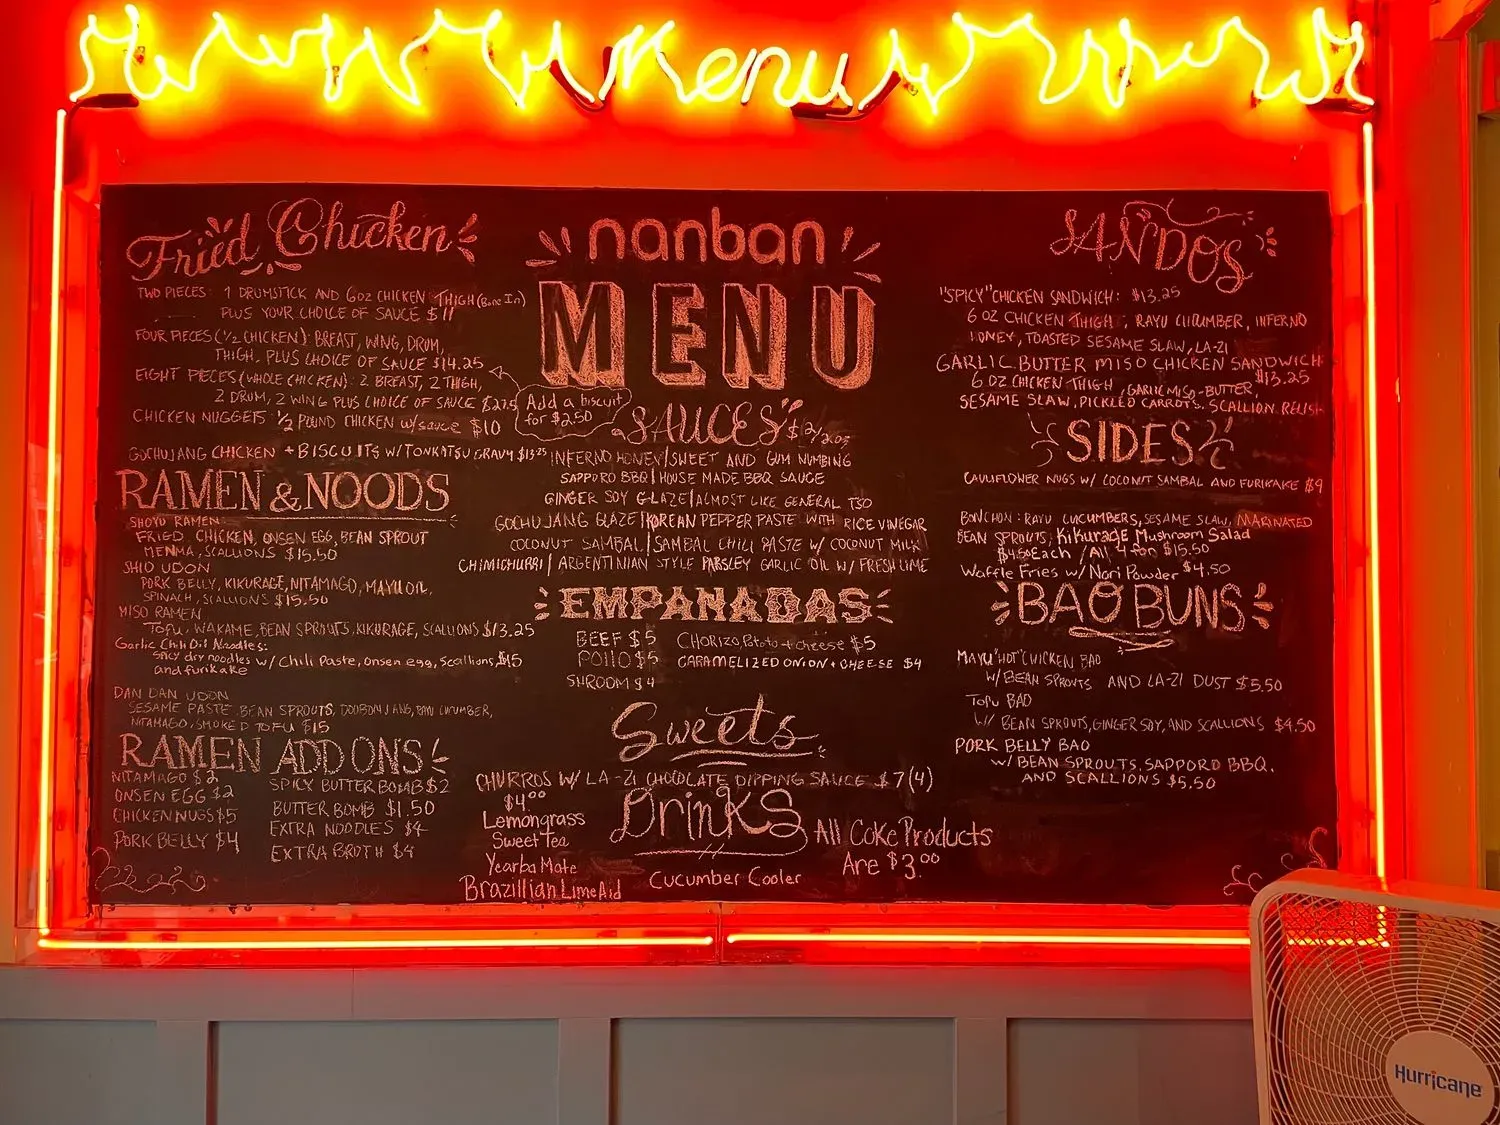 Menu
Fried Chicken
TWO PIECES: 1 DRUMSTICK AND 6OZ CHICKEN THIGH (Bone In)
PLUS YOUR CHOICE OF SAUCE $11
FOUR PIECES (1/2 CHICKEN): BREAST, WING, DRUM,
THIGH, PLUS CHOICE OF SAUCE $14.25
EIGHT PIECES (WHOLE CHICKEN): 2 BREAST, 2 THIGH,
2 DRUM, 2 WING PLUS CHOICE OF SAUCE
Add a biscuit
for $2.50
CHICKEN NUGGETS 1/2 POUND CHICKEN w/sauce $10
GOCHUJANG CHICKEN + BISCUITS W/TONKATSU GRAVY $13.25
RAMEN & NOODS
SHOYU RAMEN
FRIED CHICKEN, ONSEN EGG, BEAN SPROUT
MENMA, SCALLIONS $15.50
SHIO UDON
PORK BELLY, KIKURAGE, NITAMAGO, MAYU OIL,
SPINACH, SCALLIONS $15.50
MISO RAMEN
TOFU, WAKAME, BEAN SPROUTS, KIKURAGE, SCALLIONS $13.25
Garlic Chili Oil Noodles:
Spicy dry noodles w/ Chili Paste, Onsen egg, Scallions, $15
and furikake
DAN DAN UDON
SESAME PASTE, BEAN SPROUTS, DOUBONJANG, RAYU CUCUMBER,
NITAMAGO, SMOKED TOFU $15
RAMEN ADD ONS
NITAMAGO $2
ONSEN EGG $2
CHICKEN NUGS $5
PORK BELLY $4
SPICY BUTTER BOMB $2
BUTTER BOMB $1.50
EXTRA NOODLES $4
EXTRA BROTH $4
nanban
MENU
SAUCES $2/2oz
INFERNO HONEY | SWEET AND GUM NUMBING
SAPPORO BBQ | HOUSE MADE BBQ SAUCE
GINGER SOY GLAZE | ALMOST LIKE GENERAL TSO
GOCHUJANG GLAZE | KOREAN PEPPER PASTE WITH RICE VINEGAR
COCONUT SAMBAL | SAMBAL CHILI PASTE W/ COCONUT MILK
CHIMICHURRI | ARGENTINIAN STYLE PARSLEY GARLIC OIL W/ FRESH LIME
EMPANADAS
BEEF $5
POLLO $5
SHROOM $4
CHORIZO, Potato + cheese $5
CARAMELIZED ONION + CHEESE $4
Sweets
CHURROS W/ LA-ZI CHOCOLATE DIPPING SAUCE $7 (4)
Drinks
$4.00
Lemongrass
Sweet Tea
Yearba Mate
Brazillian LimeAid
Cucumber Cooler
All Coke Products
Are $3.00
SANDOS
"SPICY" CHICKEN SANDWICH: $13.25
6 OZ CHICKEN THIGH, RAYU CUCUMBER, INFERNO
HONEY, TOASTED SESAME SLAW, LA-ZI
GARLIC BUTTER MISO CHICKEN SANDWICH
$13.25
6 OZ CHICKEN THIGH, GARLIC MISO-BUTTER,
SESAME SLAW, PICKLED CARROTS, SCALLION RELISH
SIDES
CAULIFLOWER NUGS W/ COCONUT SAMBAL AND FURIKAKE $9
BONCHON: RAYU CUCUMBERS, SESAME SLAW, MARINATED
BEAN SPROUTS, Kikurage Mushroom Salad
$4.50 Each / All 4 for $15.50
Waffle Fries w/ Nori Powder $4.50
BAO BUNS
MAYU "HOT" CHICKEN BAO
W/ BEAN SPROUTS AND LA-ZI DUST $5.50
TOFU BAO
W/ BEAN SPROUTS, GINGER SOY, AND SCALLIONS $4.50
PORK BELLY BAO
W/ BEAN SPROUTS, SAPPORO BBQ,
AND SCALLIONS $5.50
Hurricane